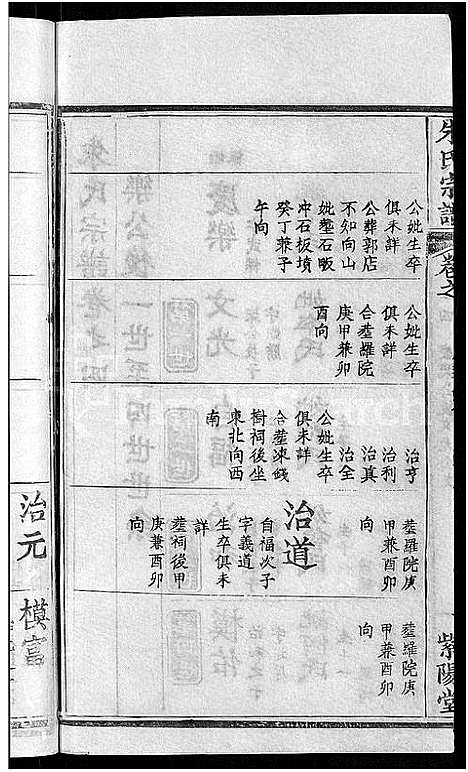 朱氏宗譜
卷之
紫陽堂
公妣生卒
俱未詳
公葬郭店
不知向山
妣塟石畈
冲石板墳
癸丁兼子
午向
公妣生卒
俱未詳
合塟羅院
庚甲兼卯
酉向
治亨
治利
治真
治全
公妣生卒
俱未詳
合塟凍錢
樹祠後坐
東北向西
南
塟羅院庚
甲兼酉卯
向
治道
自福次子
字義道
生卒俱未
詳
塟祠後甲
庚兼酉卯
向
塟羅院庚
甲兼酉卯
向
治元
模富